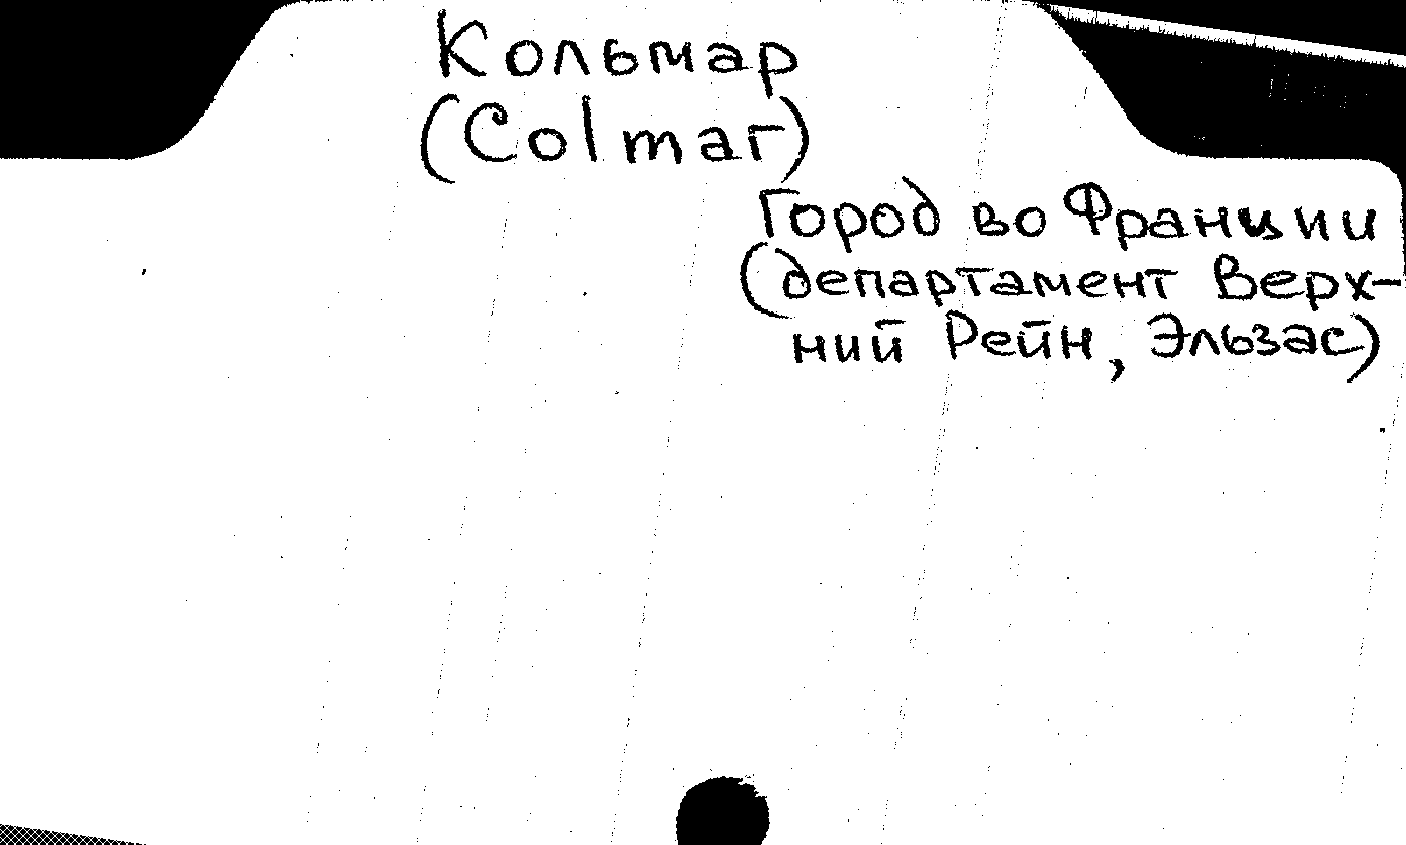 Кольмар
(Colmar)
Город во Франции
(департамент Верх-
ний Рейн, Эльзас)